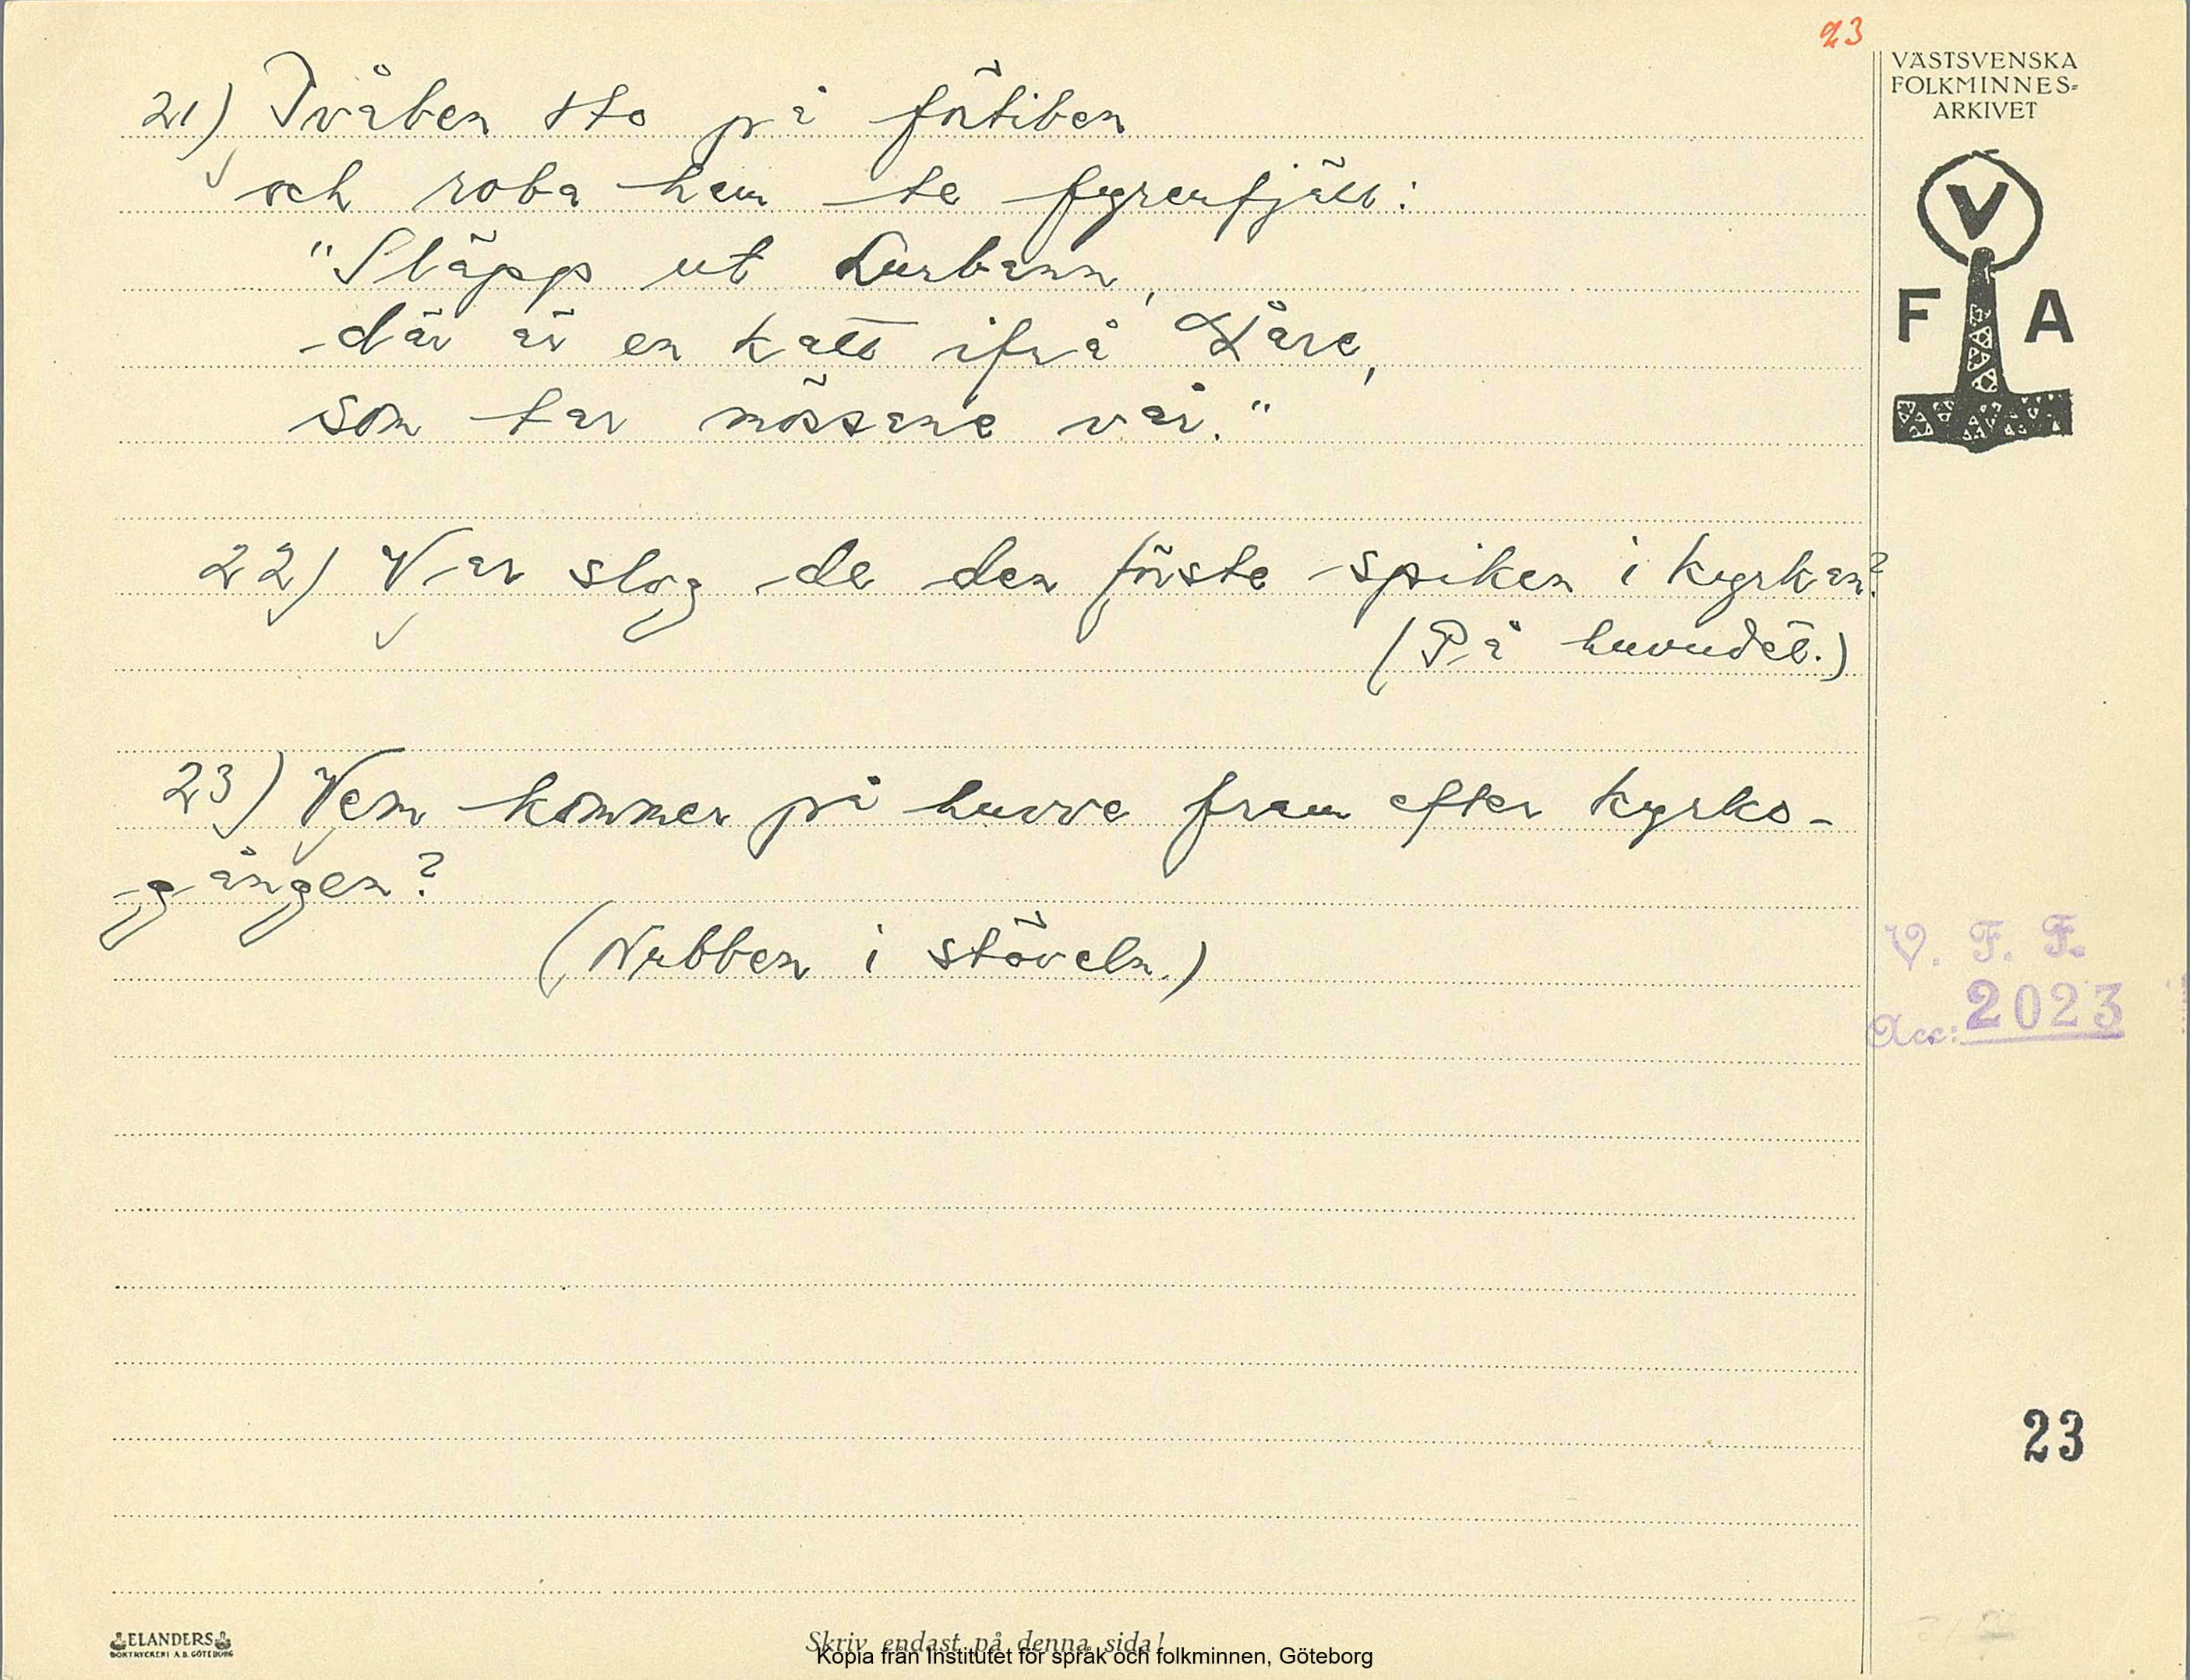 23
VÄSTSVENSKA
FOLKMINNES-
ARKIVET
V
F A
21) Tvåben sto på förtiben
och roba hem te fyrenfjäll:
"Släpp ut Lurbann,
där är en katt ifrå Låre,
som tar mössene vår."
22) Var slog de den förste spiken i kyrkan?
(På huvudet.)
23) Vem kommer på huvve fram efter kyrko-
gången?
(Nubben i stöveln.)
V. F. F.
Acc: 2023
23
ELANDERS
BOKTRYCKERI A.B. GÖTEBORG
Skriv endast på denna sida!
Kopia från Institutet för språk och folkminnen, Göteborg